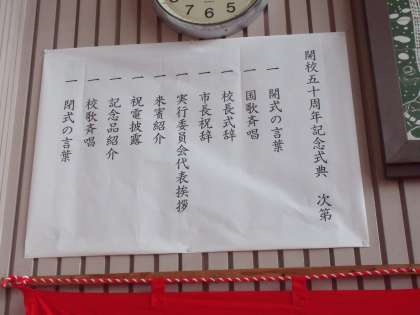 開校五十周年記念式典 次第
一 開式の言葉
一 国歌斉唱
一 校長式辞
一 市長祝辞
一 実行委員会代表挨拶
一 来賓紹介
一 祝電披露
一 記念品紹介
一 校歌斉唱
一 閉式の言葉
7 6 5
8